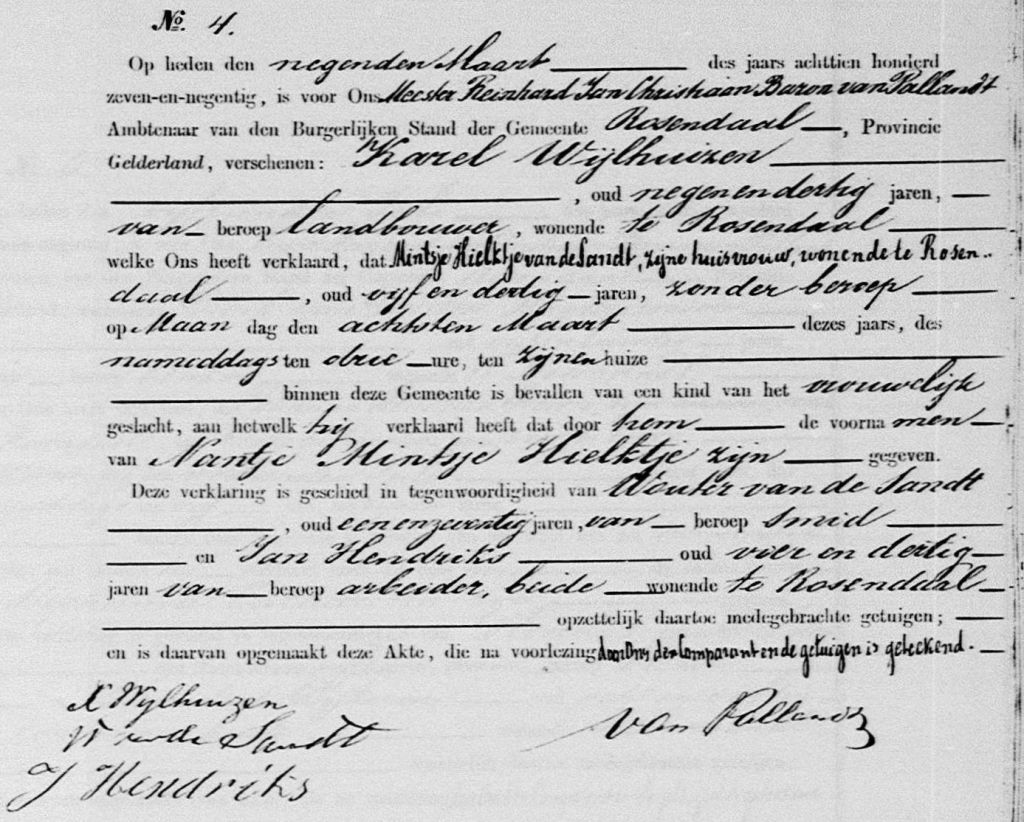 No. 4.
Op heden den negenden Maart des jaars achttien honderd
zeven-en-negentig, is voor Ons Meester Reinhard Jan Christiaan Baron van Pallandt
Ambtenaar van den Burgerlijken Stand der Gemeente Rosendaal, Provincie
Gelderland, verschenen: Karel Wijlhuizen
, oud negenendertig jaren,
van beroep landbouwer, wonende te Rosendaal
welke Ons heeft verklaard, dat Mintsje Hielktje van de Sandt, zijne huisvrouw, wonende te Rosen-
daal, oud vijf en dertig jaren, zonder beroep
op Maandag den achtsten Maart dezes jaars, des
namiddags ten drie ure, ten zijnen huize
binnen deze Gemeente is bevallen van een kind van het vrouwelijk
geslacht, aan hetwelk hij verklaard heeft dat door hem de voornamen
van Nantje Mintsje Hielktje zijn gegeven.
Deze verklaring is geschied in tegenwoordigheid van Wouter van de Sandt
, oud eenenzeventig jaren, van beroep smid
en Jan Hendriks oud vier en dertig
jaren van beroep arbeider, beide wonende te Rosendaal
opzettelijk daartoe medegebrachte getuigen;
en is daarvan opgemaakt deze Akte, die na voorlezing door Ons den Comparant en de getuigen is geteekend.
K Wylhuizen
W van de Sandt van Pallandt
J Hendriks